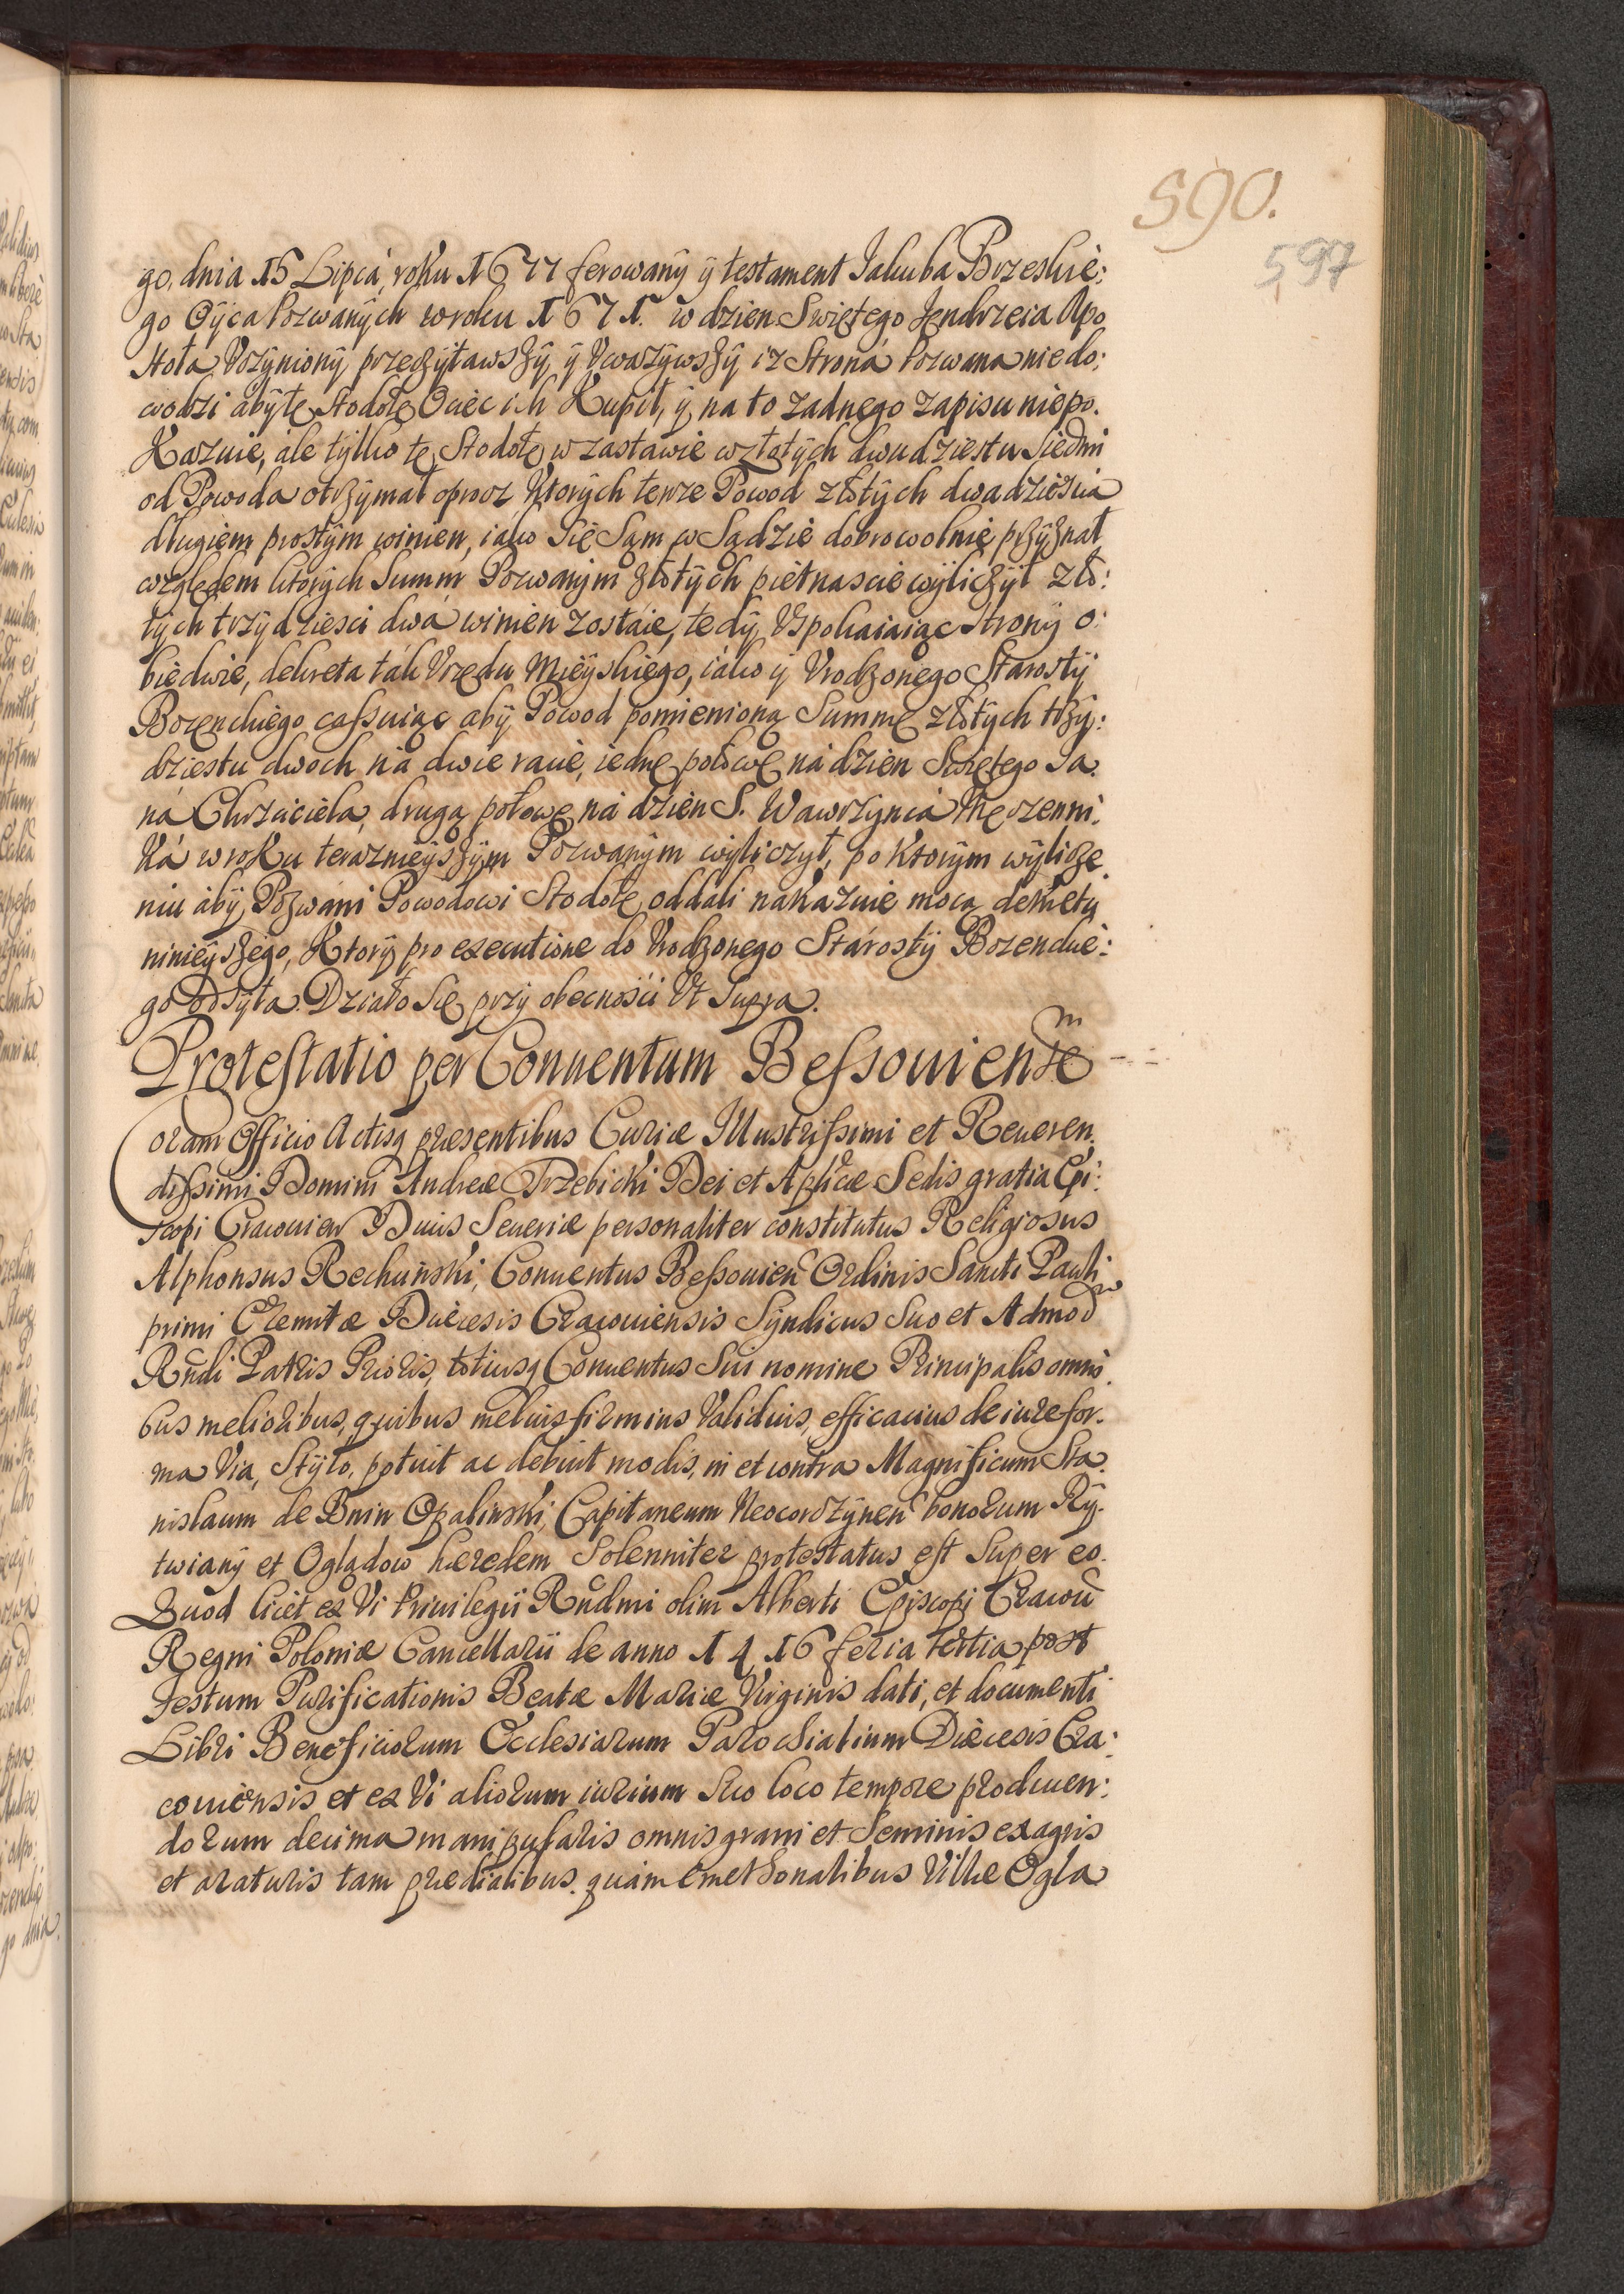 590.
597
go, dnia 15 Lipca, roku 1677 ferowany ÿ testament Jakuba Brzeskie:
go Oÿca Pozwanÿch w roku 1671. w dzien Swiętego Jendrzeia Apo
stoła Vczÿnionÿ przeczÿtawszÿ, ÿ Vwazÿwszÿ iz Strona Pozwana nie do:
wodzi abÿ tę Stodołę Ociec ich Kupił, ÿ na to zadnego zapisu niepo.
Kazuie, ale tÿlko tę Stodołę w zastawie w złotÿch dwudziestu Siedmi
od Powoda otrzÿmał oprocz Ktorÿch tenze Powod złotÿch dwadziescia
długiem prostÿm winien, iako Się Sam w Sądzie dobrowolnie przÿznał
względem ktorÿch Summ Pozwanÿm złotÿch piętnascie wÿliczÿł zło:
tÿch trzÿdziesci dwa winien zostaie, tedÿ Vspokaiaiąc stronÿ o:
biedwie, dekreta tak Vrzędu Mieÿskiego, iako ÿ Vrodzonego Starostÿ
Bozenckiego cassuiąc abÿ Powod pomienioną Summę złotÿch trzÿ:
dziestu dwoch na dwie racie, iednę połowę na dzien Swiętego Ja.
na Chrzciciela, drugą połowę na dzien S. Wawrzÿnca Męczenni.
Ka w roKu teraznieÿszÿm Pozwanÿm wÿliczÿł, po Ktorÿm wÿlicze.
niu abÿ Pozwani Powodowi Stodołę oddali nakazuie mocą dekretu
ninieÿszego, Ktorÿ pro executione do Vrodzonego Starostÿ Bozenckie:
go odsÿła. Działo Się przÿ obecnosci Vt Supra.
Protestatio per Conuentum Bessouiensem
Coram Officio Actisq presentibus Curiæ Illustrissimi et Reueren.
dissimi Domini Andreæ Trzebicki Dei et Aplicæ Sedis gratia Epi:
scopi Cracouien Ducis Seueriæ personaliter constitutus Religiosus
Alphonsus Rechuński, Conuentus Bessouien Ordinis Sancti Pauli
primi Eremitæ Diæcesis Cracouiensis Sÿndicus Suo et Admod
Rndi Patris Prioris, totiusq Conuentus Sui nomine Principalis omni.
bus melioribus, quibus melius firmius Validius, efficacius de iure for.
ma Via, Stÿlo, potuit ac debuit modis, in et contra Magnificum Sta.
nislaum de Bnin Opalinski, Capitaneum Neocordzÿnen bonorum Rÿ.
twianÿ et Oglądow hæredem Solenniter protestatus est Super eo.
Quod licet ex Vi Priuilegii Rndmi olim Alberti Episcopi Cracou
Regni Poloniæ Cancellarii de anno 1416 feria tertia post
festum Purificationis Beatæ Mariæ Virginis dati, et documenti
Libri Beneficiorum Ecclesiarum Parochialium Diæcesis Cra:
couiensis et ex Vi aliorum iurium Suo loco tempore producen:
dorum decima manipularis omnis grani et Seminis ex agris
et araturis tam prædialibus quam Cmethonalibus Villæ Ogla